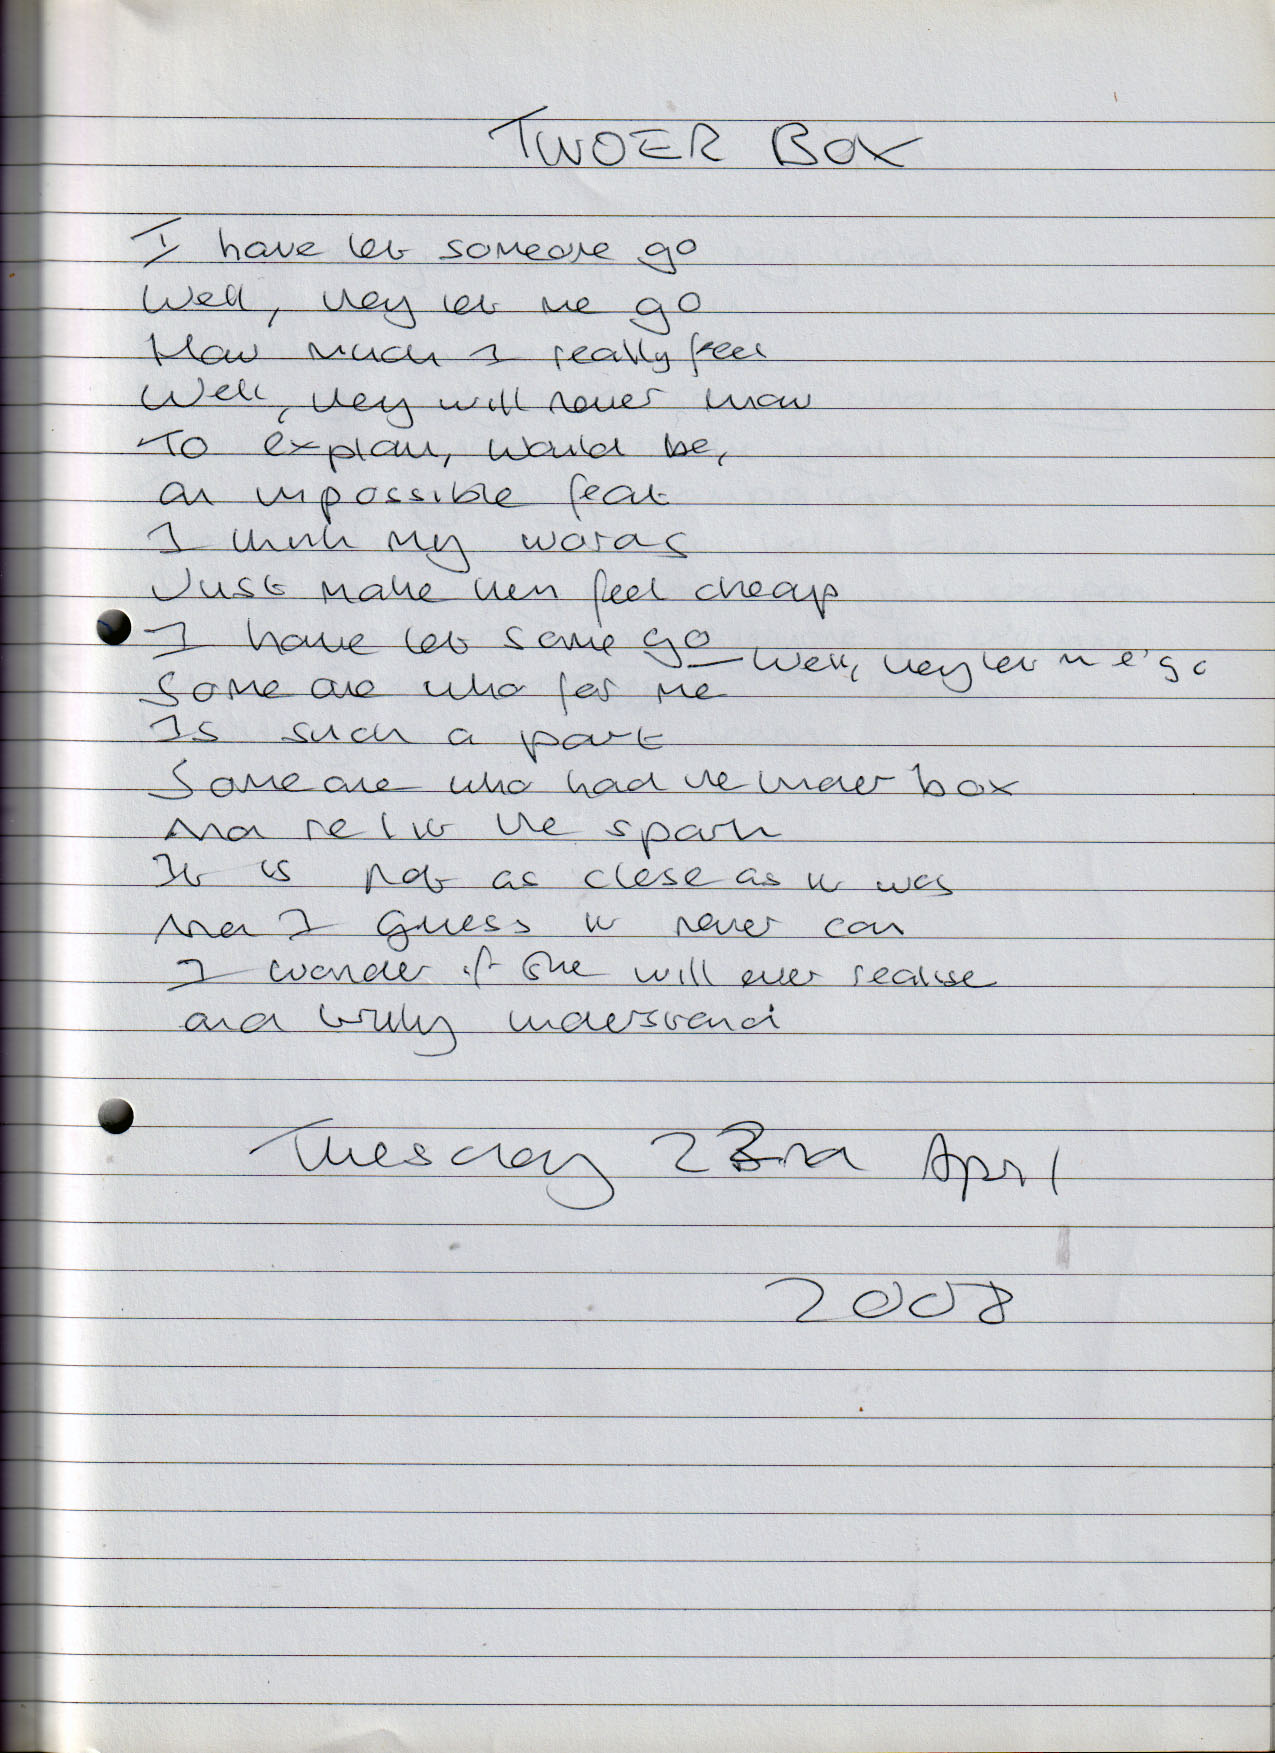 TWOER BOX
I have let someone go
Well, they let me go
How much I really feel
Well, they will never know
To explain, would be,
an impossible feat
I think my words
Just make them feel cheap
I have let some go — Well, they let me go
Some one who for me
Is such a part
Some one who had the tinder box
And re lit the spark
It is not as close as it was
And I guess it never can
I wonder if she will ever realise
and truly understand
Tuesday 23rd April
2008